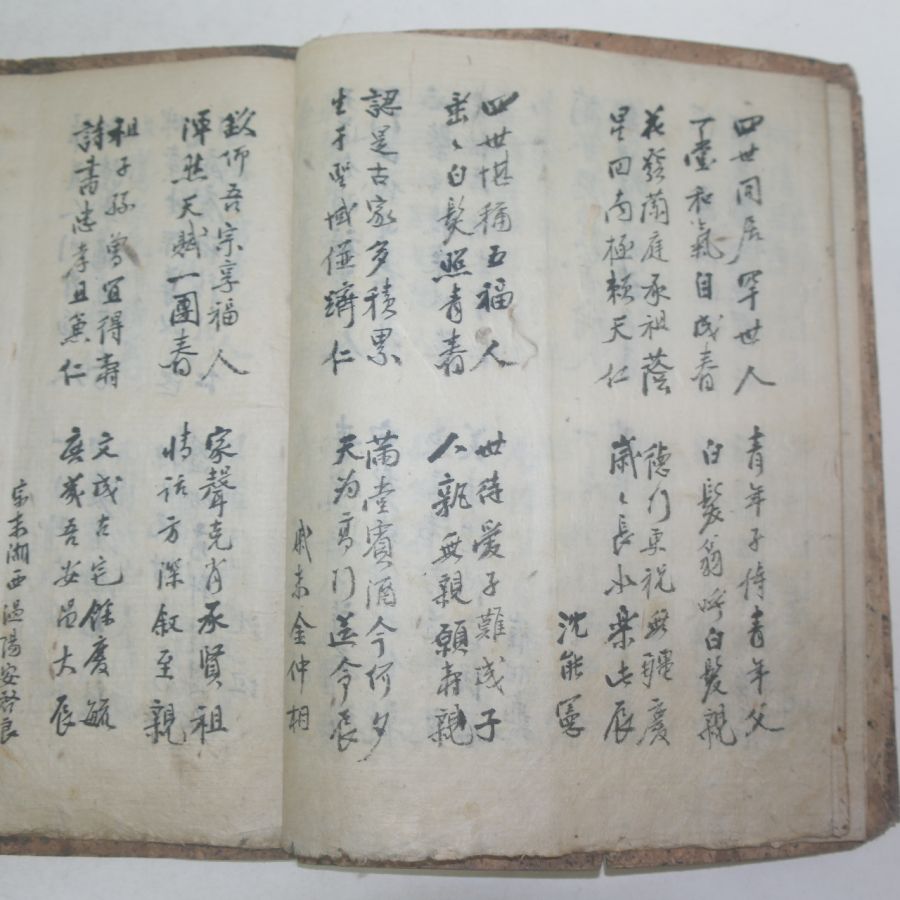 四世同居罕世人 青年子侍青年父
一堂和氣自成春 白髮翁呼白髮親
花發蘭庭承祖蔭 德門更祝無疆慶
星回南極賴天仁 歲〻長 樂此辰
沈能
四世堪稱五福人 世 愛子難 子
垂〻白髮照青春 人 無親願壽親
認是古家多積累 滿堂賓酒今何夕
生于聖域 躋仁 天為高門送令辰
戚末金仲
欽仰吾宗享福人 家聲克肖承賢祖
渾然天賦一團春 情話方深叙至親
祖子孫曾宜得壽 文成古宅餘慶毓
詩書忠孝且兼仁 庶幾吾安 大辰
宗末湘西温陽安 良